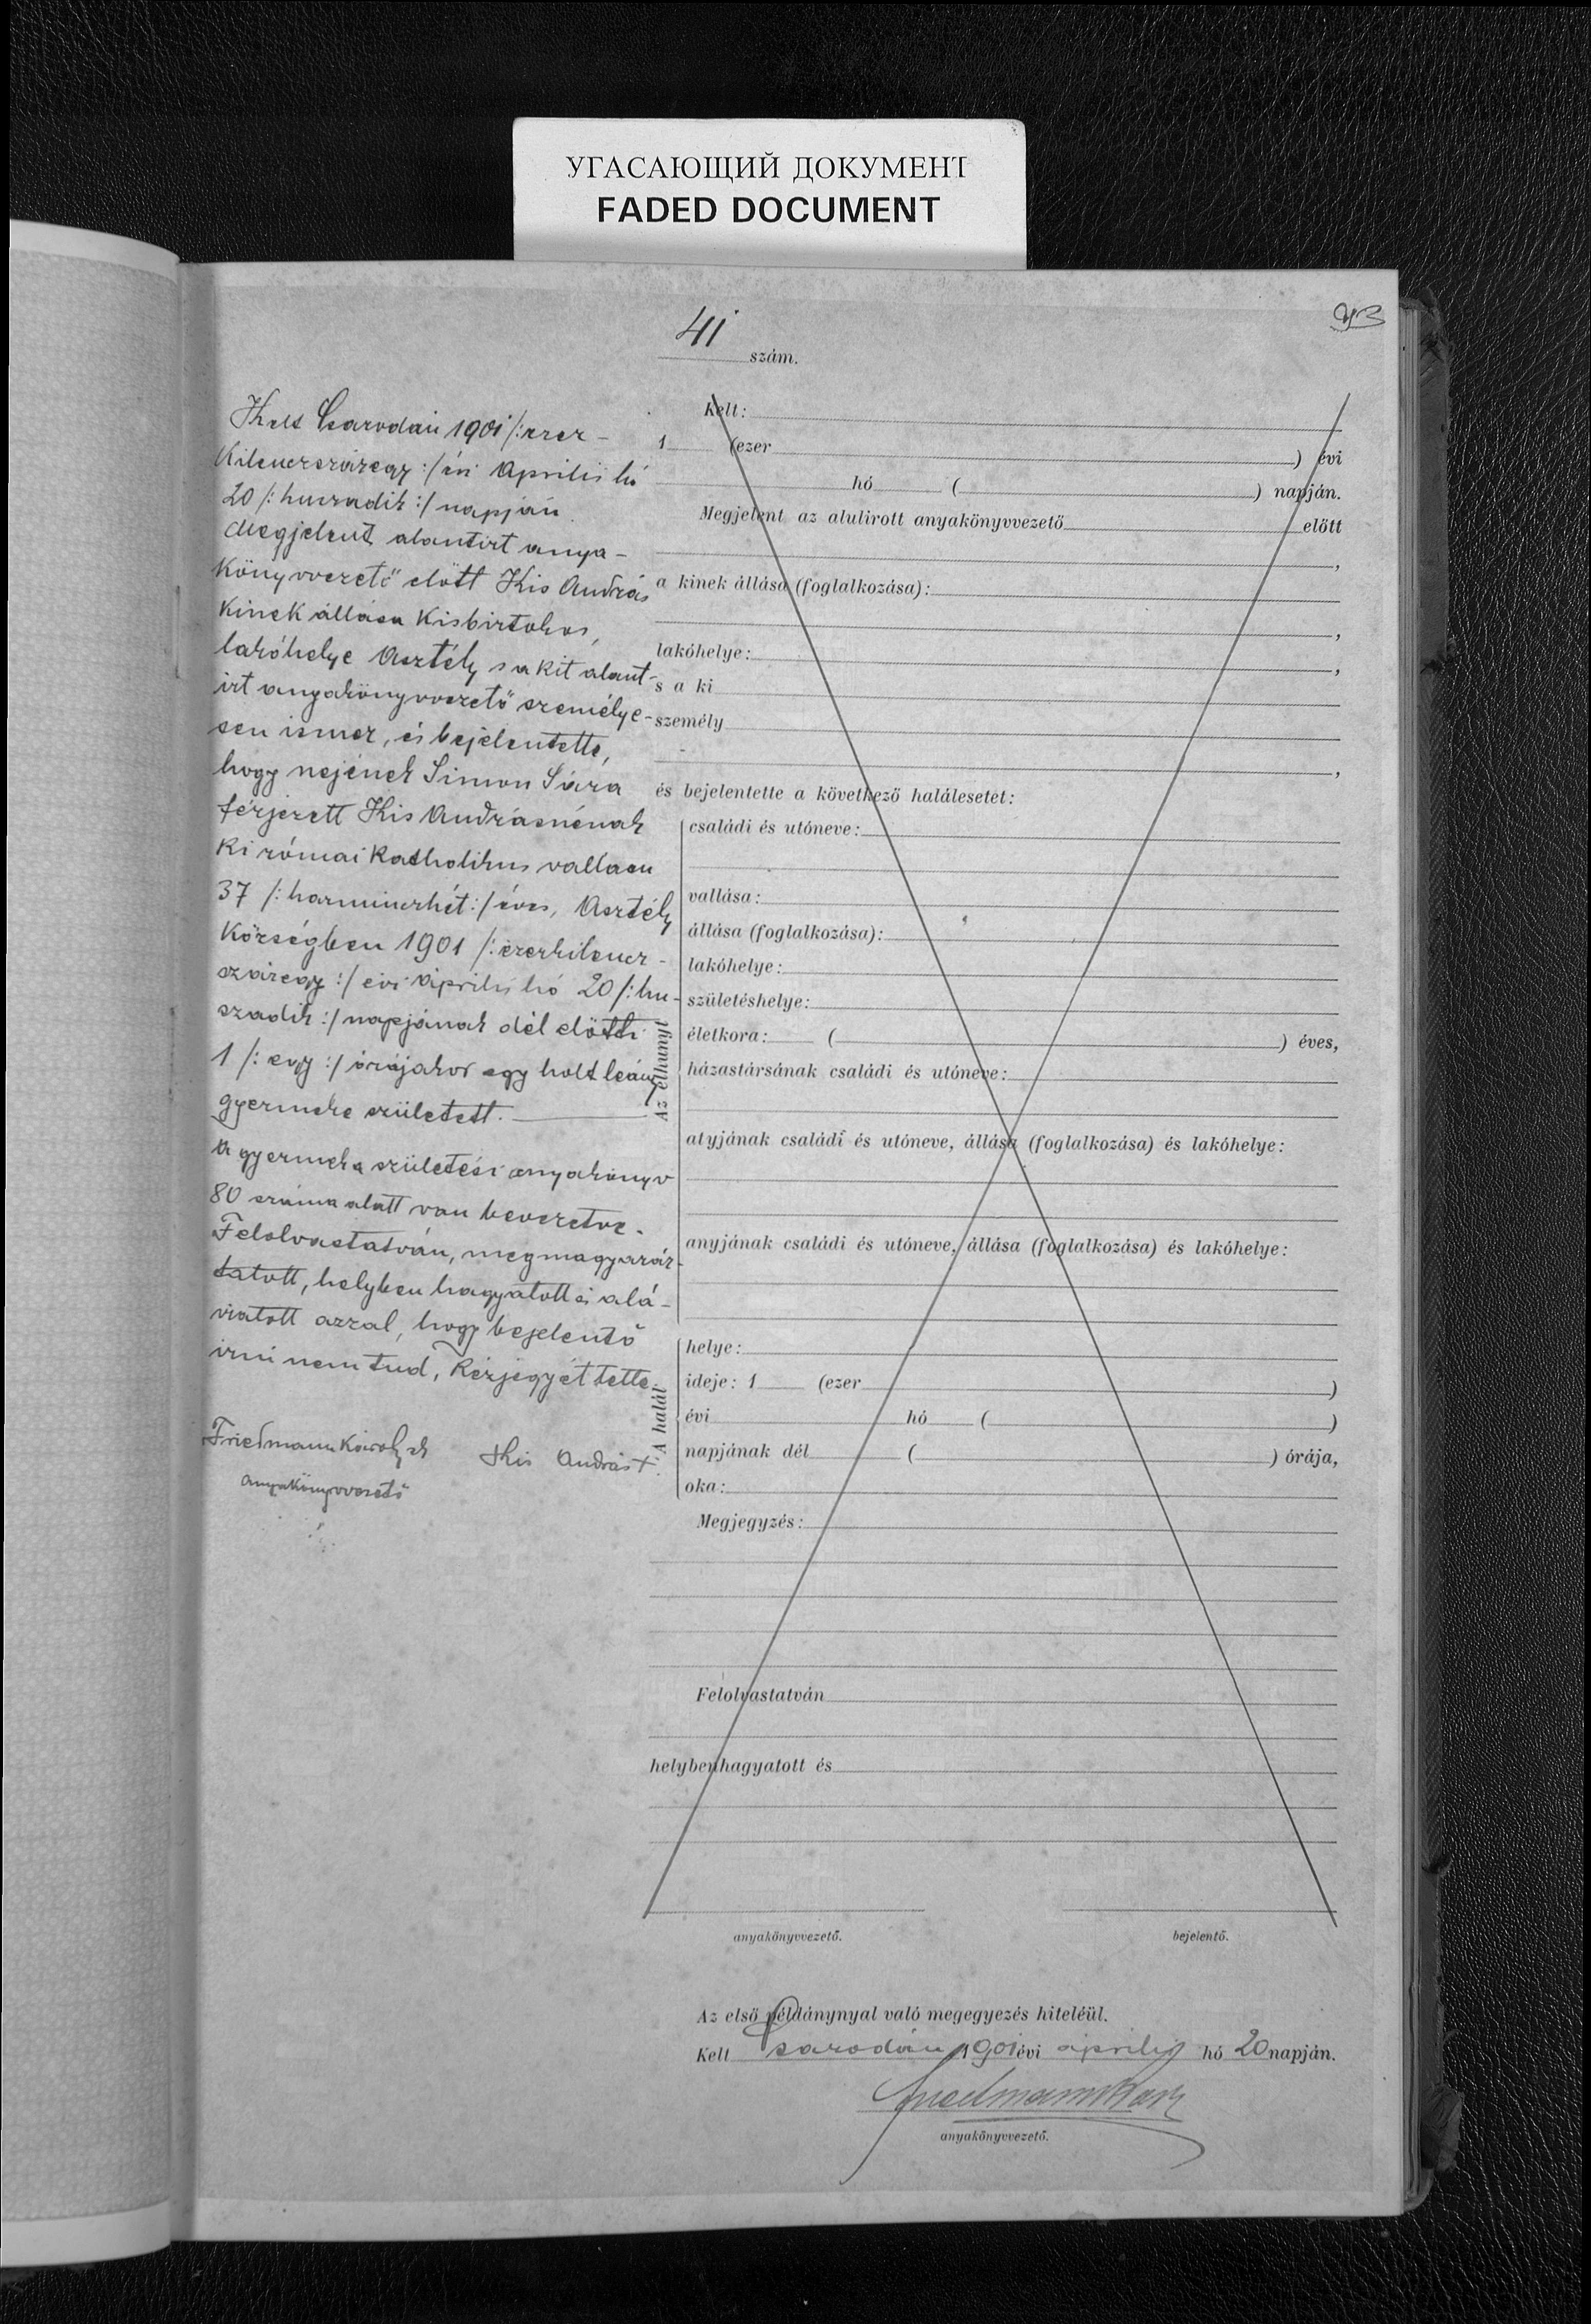 УГАСАЮЩИЙ ДОКУМЕНТ
FADED DOCUMENT
41 szám.
Kelt Csarodán 1901 /: ezer-
kilenczszázegy :/ évi Április hó
20 /: huszadik :/ napján
Megjelent alantirt anya-
könyvvezető előtt Kis András
kinek állása kisbirtokos,
lakóhelye Asztély s a kit alant-
irt anyakönyvvezető személye-
sen ismer, és bejelentette,
hogy nejének Simon Sára
férjezett Kis Andrásnénak
ki római katholikus vallásu
37 /: harminczhét :/ éves, Asztély
községben 1901 /: ezerkilencz-
százegy :/ évi április hó 20 /: hu-
szadik :/ napjának dél előtti
1 /: egy :/ órájakor egy holt leány
gyermeke született.
A gyermek a születési anyakönyv
80 száma alatt van bevezetve.
Felolvastatván, megmagyaráz-
tatott, helyben hagyatott és alá-
iratott azzal, hogy bejelentő
irni nem tud, kézjegyét tette.
Friedmann Károly
Kis András +
anyakönyvvezető
Kelt:
1 (ezer ) évi
hó ( ) napján.
Megjelent az alulirott anyakönyvvezető előtt
,
a kinek állása (foglalkozása):
,
lakóhelye: ,
s a ki
személy
,
és bejelentette a következő halálesetet:
Az elhunyt
családi és utóneve:
vallása:
állása (foglalkozása):
lakóhelye:
születéshelye:
életkora: ( ) éves,
házastársának családi és utóneve:
atyjának családi és utóneve, állása (foglalkozása) és lakóhelye:
anyjának családi és utóneve, állása (foglalkozása) és lakóhelye:
A halál
helye:
ideje: 1 (ezer )
évi hó ( )
napjának dél ( ) órája,
oka:
Megjegyzés:
Felolvastatván
helybenhagyatott és
anyakönyvvezető. bejelentő.
Az első példánynyal való megegyezés hiteléül.
Kelt Csarodán 1901 évi április hó 20 napján.
anyakönyvvezető.